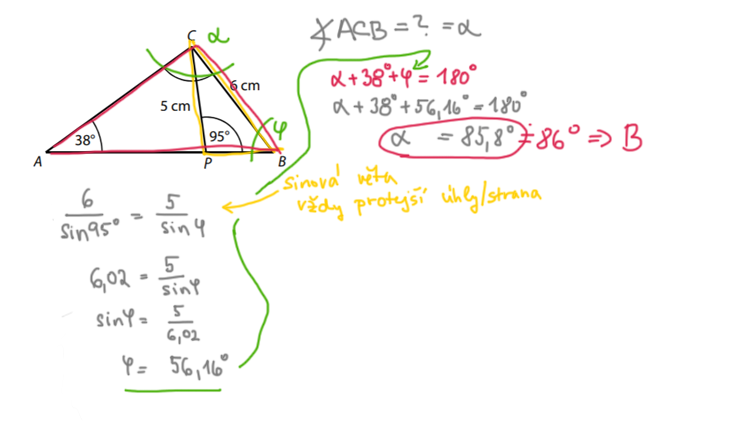 ∡ACB = ? = α
C α
6 cm
5 cm
38°
95°
φ
A
P
B
α + 38° + φ = 180°
α + 38° + 56,16° = 180°
α = 85,8° ≐ 86° => B
sinová věta
vždy protější úhly/strana
6/sin95° = 5/sinφ
6,02 = 5/sinφ
sinφ = 5/6,02
φ = 56,16°